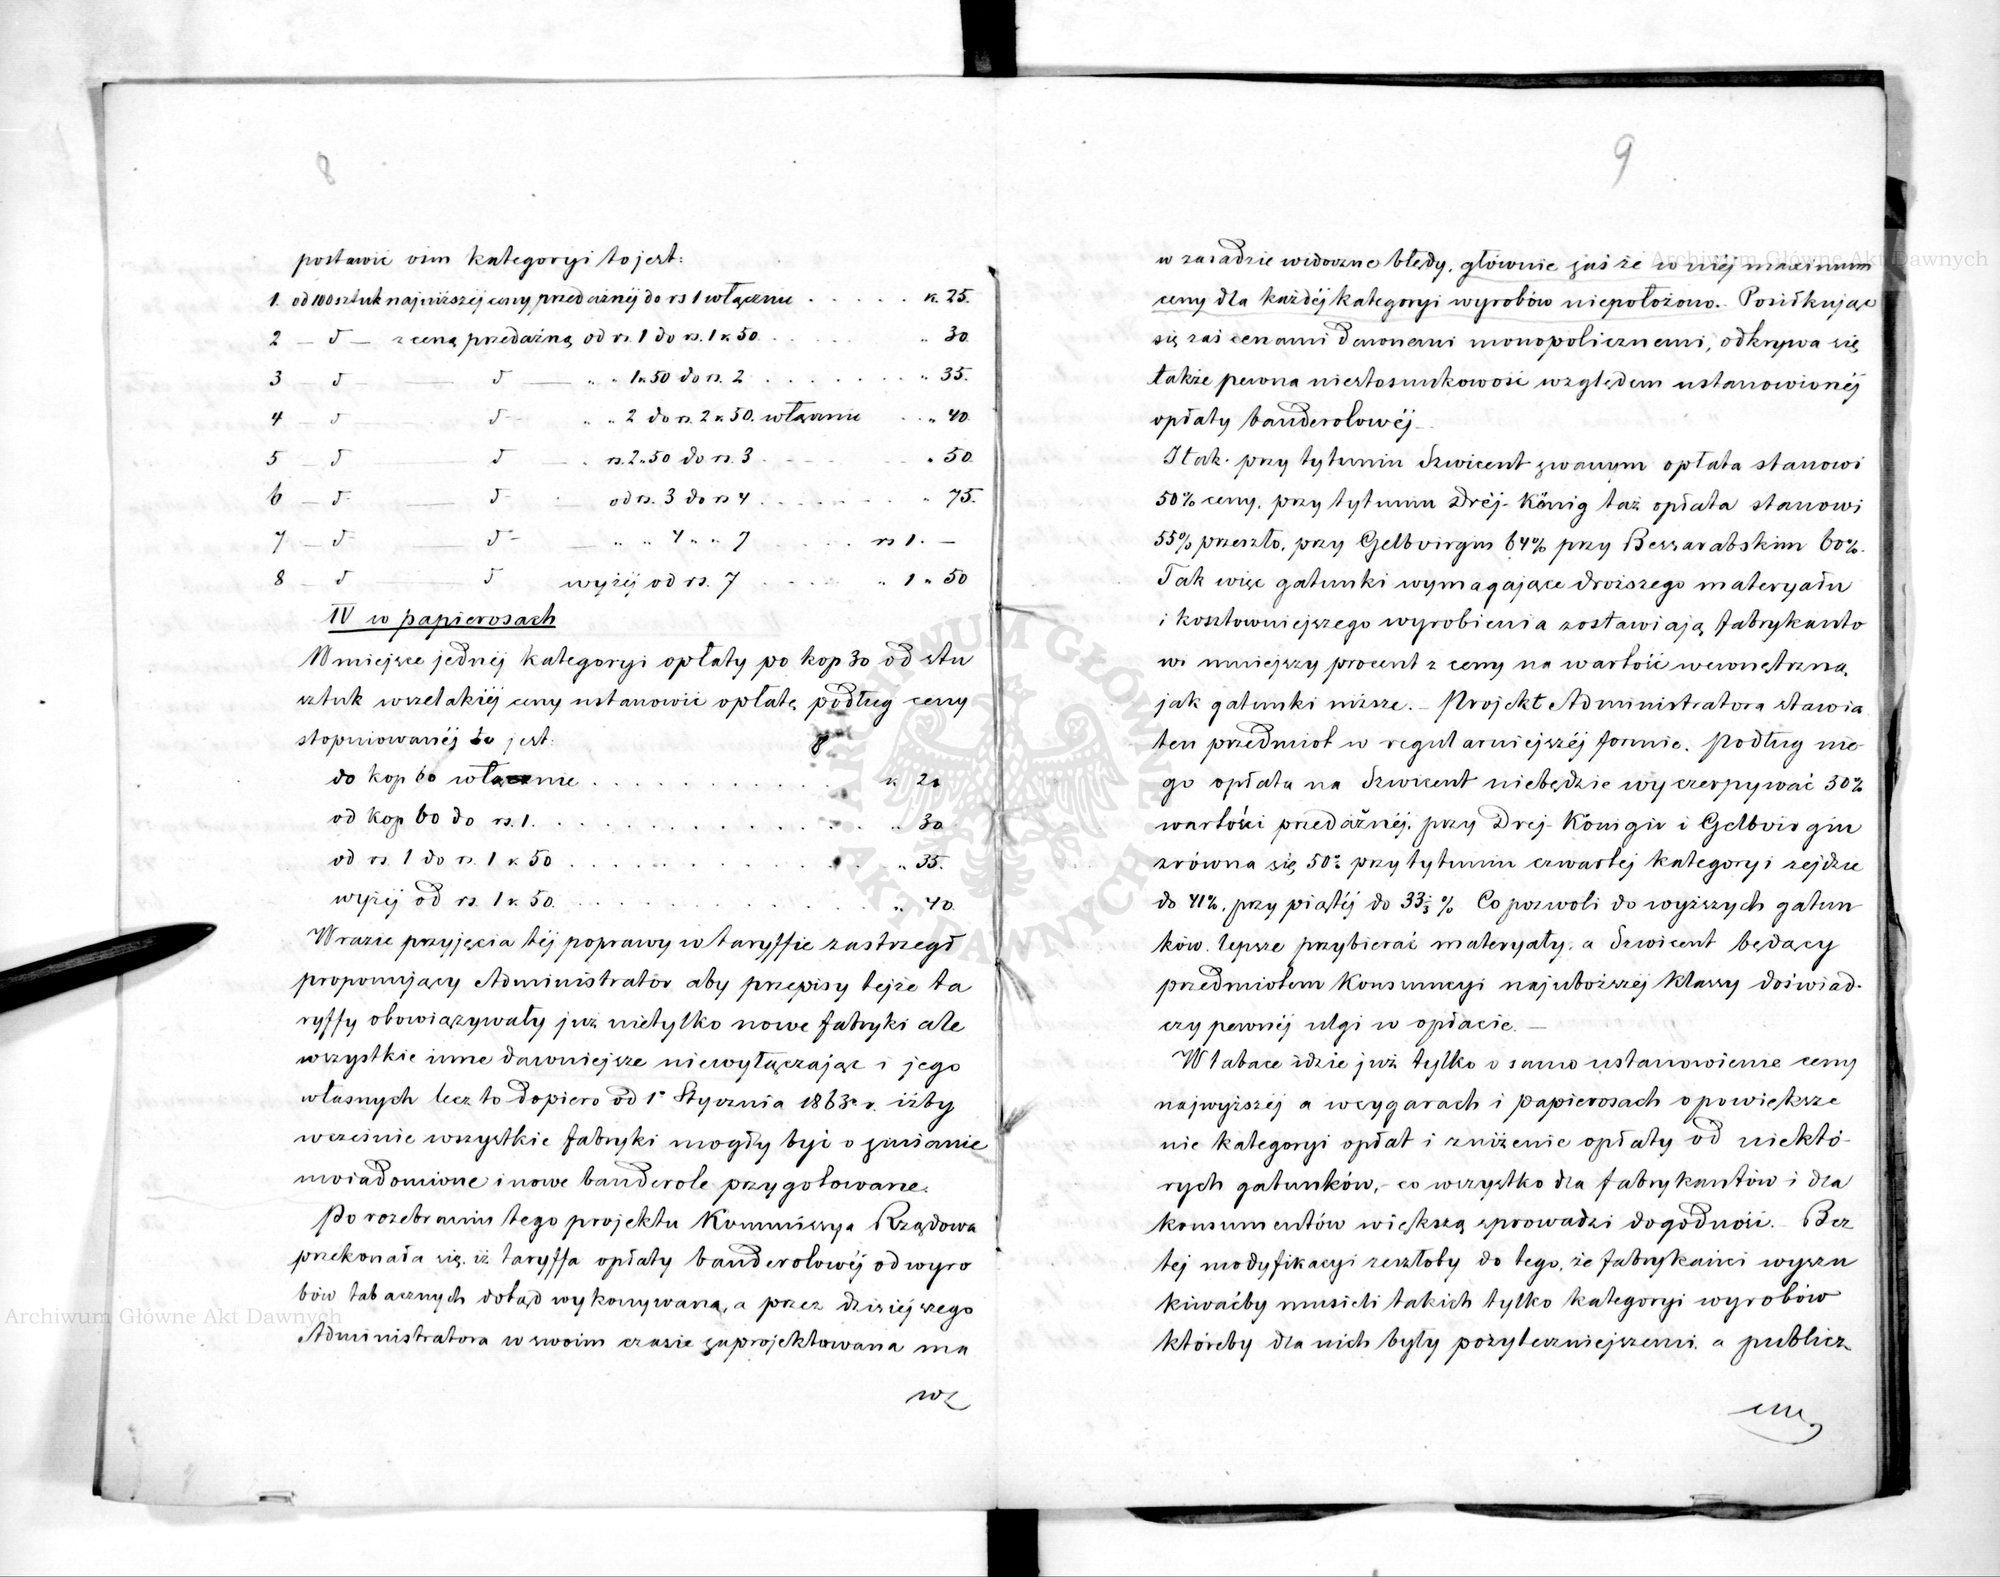 8
postawić ośm kategoryi to jest:
1. od 100 sztuk najniższéj ceny przedażnéj do rs 1 włącznie . . . . . k. 25.
2 — d — z ceną przedażną od rs. 1 do rs. 1 k 50. . . . . . „ 30.
3 — d — — d — „ „ 1 k 50 do rs. 2 . . . . . . . „ 35.
4 — d — — d — „ „ 2 do rs. 2 k 50. włącznie . . „ 40.
5 — d — d — „ rs. 2 „ 50 do rs. 3 . . . . „ 50.
6 — d — — d — od rs. 3 do rs 4 . . . . . . „ 75.
7 — d — — d — — „ „ 4 „ „ 7 . . . . . rs 1. —
8 — d — d wyżéj od rs. 7 . . . . . „ 1 „ 50
IV w papierosach
W miejsce jednéj kategoryi opłaty po kop 30 od stu
sztuk wszelakiéj ceny ustanowić opłatę podług ceny
stopniowanéj to jest:
do kop 60 włącznie . . . . . . . . . . k 20
od kop 60 do rs. 1. . . . . . . . . . . . „ 30
od rs. 1 do rs. 1 k 50 . . . . . . . . . . „ 35.
wyżéj od rs. 1 k. 50. . . . . . . . . . . „ 40.
W razie przyjęcia téj poprawy w taryffie zastrzegł
proponujący Administrator aby przepisy tejże ta
ryffy obowiązywały już nietylko nowe fabryki ale
wszystkie inne dawniejsze niewyłączając i jego
własnych lecz to dopiero od 1o Stycznia 1863 r. iżby
wcześnie wszystkie fabryki mogły być o zmianie
uwiadomione i nowe banderole przygotowane.
Po rozebraniu tego projektu Kommissya Rządowa
przekonała się, iż taryffa opłaty banderolowéj od wyro
bów tabacznych dotąd wykonywana, a przez dzisiéjszego
Administratora w swoim czasie zaprojektowana ma
w
9
w zasadzie widoczne błędy, głównie zaś że w niéj maximum
ceny dla każdéj kategoryi wyrobów niepołożono. Posiłkując
się zaś cenami dawnemi monopolicznemi, odkrywa się
także pewna niestosunkowość względem ustanowionéj
opłaty banderolowéj.
I tak przy tytuniu Szwicent zwanym opłata stanowi
50% ceny, przy tytuniu Dréj-König taż opłata stanowi
55% przeszło, przy Gelbvirgin 64% przy Bessarabskim 60%.
Tak więc gatunki wymagające droższego materyału
i kosztowniejszego wyrobienia zostawiają fabrykanto
wi mniejszy procent z ceny na wartość wewnętrzną,
jak gatunki niższe. — Projekt Administratora stawia
ten przedmiot w regularniejszéj formie. Podług nie-
go opłata na Szwicent niebędzie wyczerpywać 30%
wartości przedażnéj, przy Drej-Königu i Gelbvirgin
zrówna się 50% przy tytuniu czwartéj kategoryi zejdzie
do 41%, przy piątéj do 33 1/3 % Co pozwoli do wyższych gatun
ków lepsze przybierać materyały, a Szwicent będący
przedmiotem Konsumcyi najuboższéj Klassy doświad-
czy pewnéj ulgi w opłacie. —
W tabace idzie już tylko o samo ustanowienie ceny
najwyższéj a w cygarach i papierosach o powiększe
nie kategoryi opłat i zniżenie opłaty od niektó-
rych gatunków, — co wszystko dla fabrykantów i dla
konsumentów większą sprowadzi dogodność. — Bez
téj modyfikacyi zeszłoby do tego, że fabrykańci wyszu
kiwaćby musieli takich tylko kategoryi wyrobów
któreby dla nich były pożyteczniejszemi, a publicz